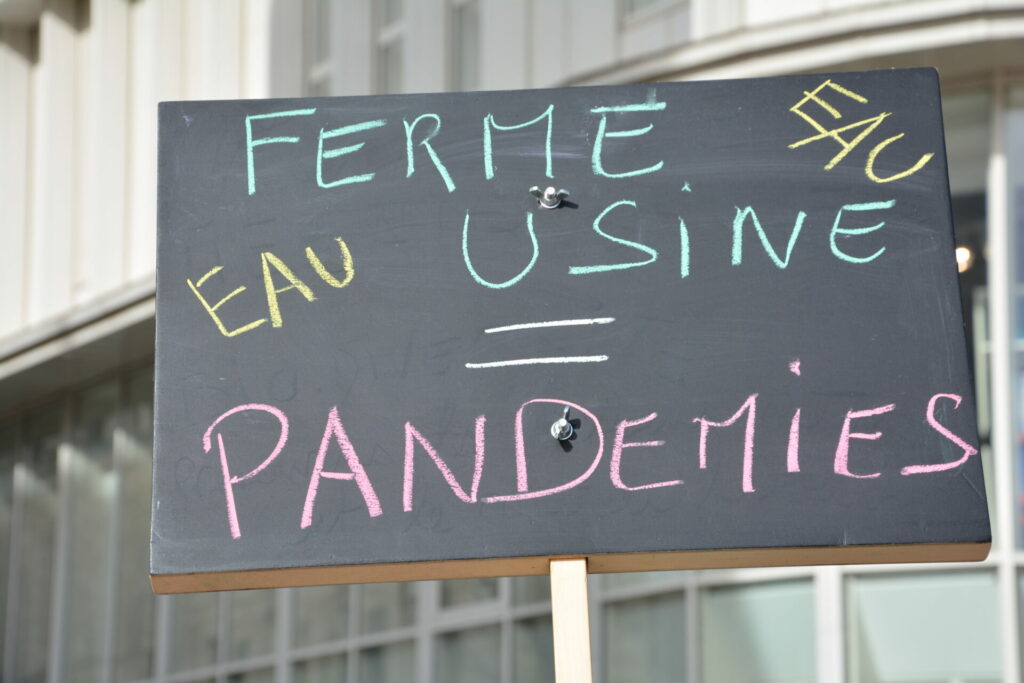 FERME EAU
USiNE
EAU
=
PANDEMiES